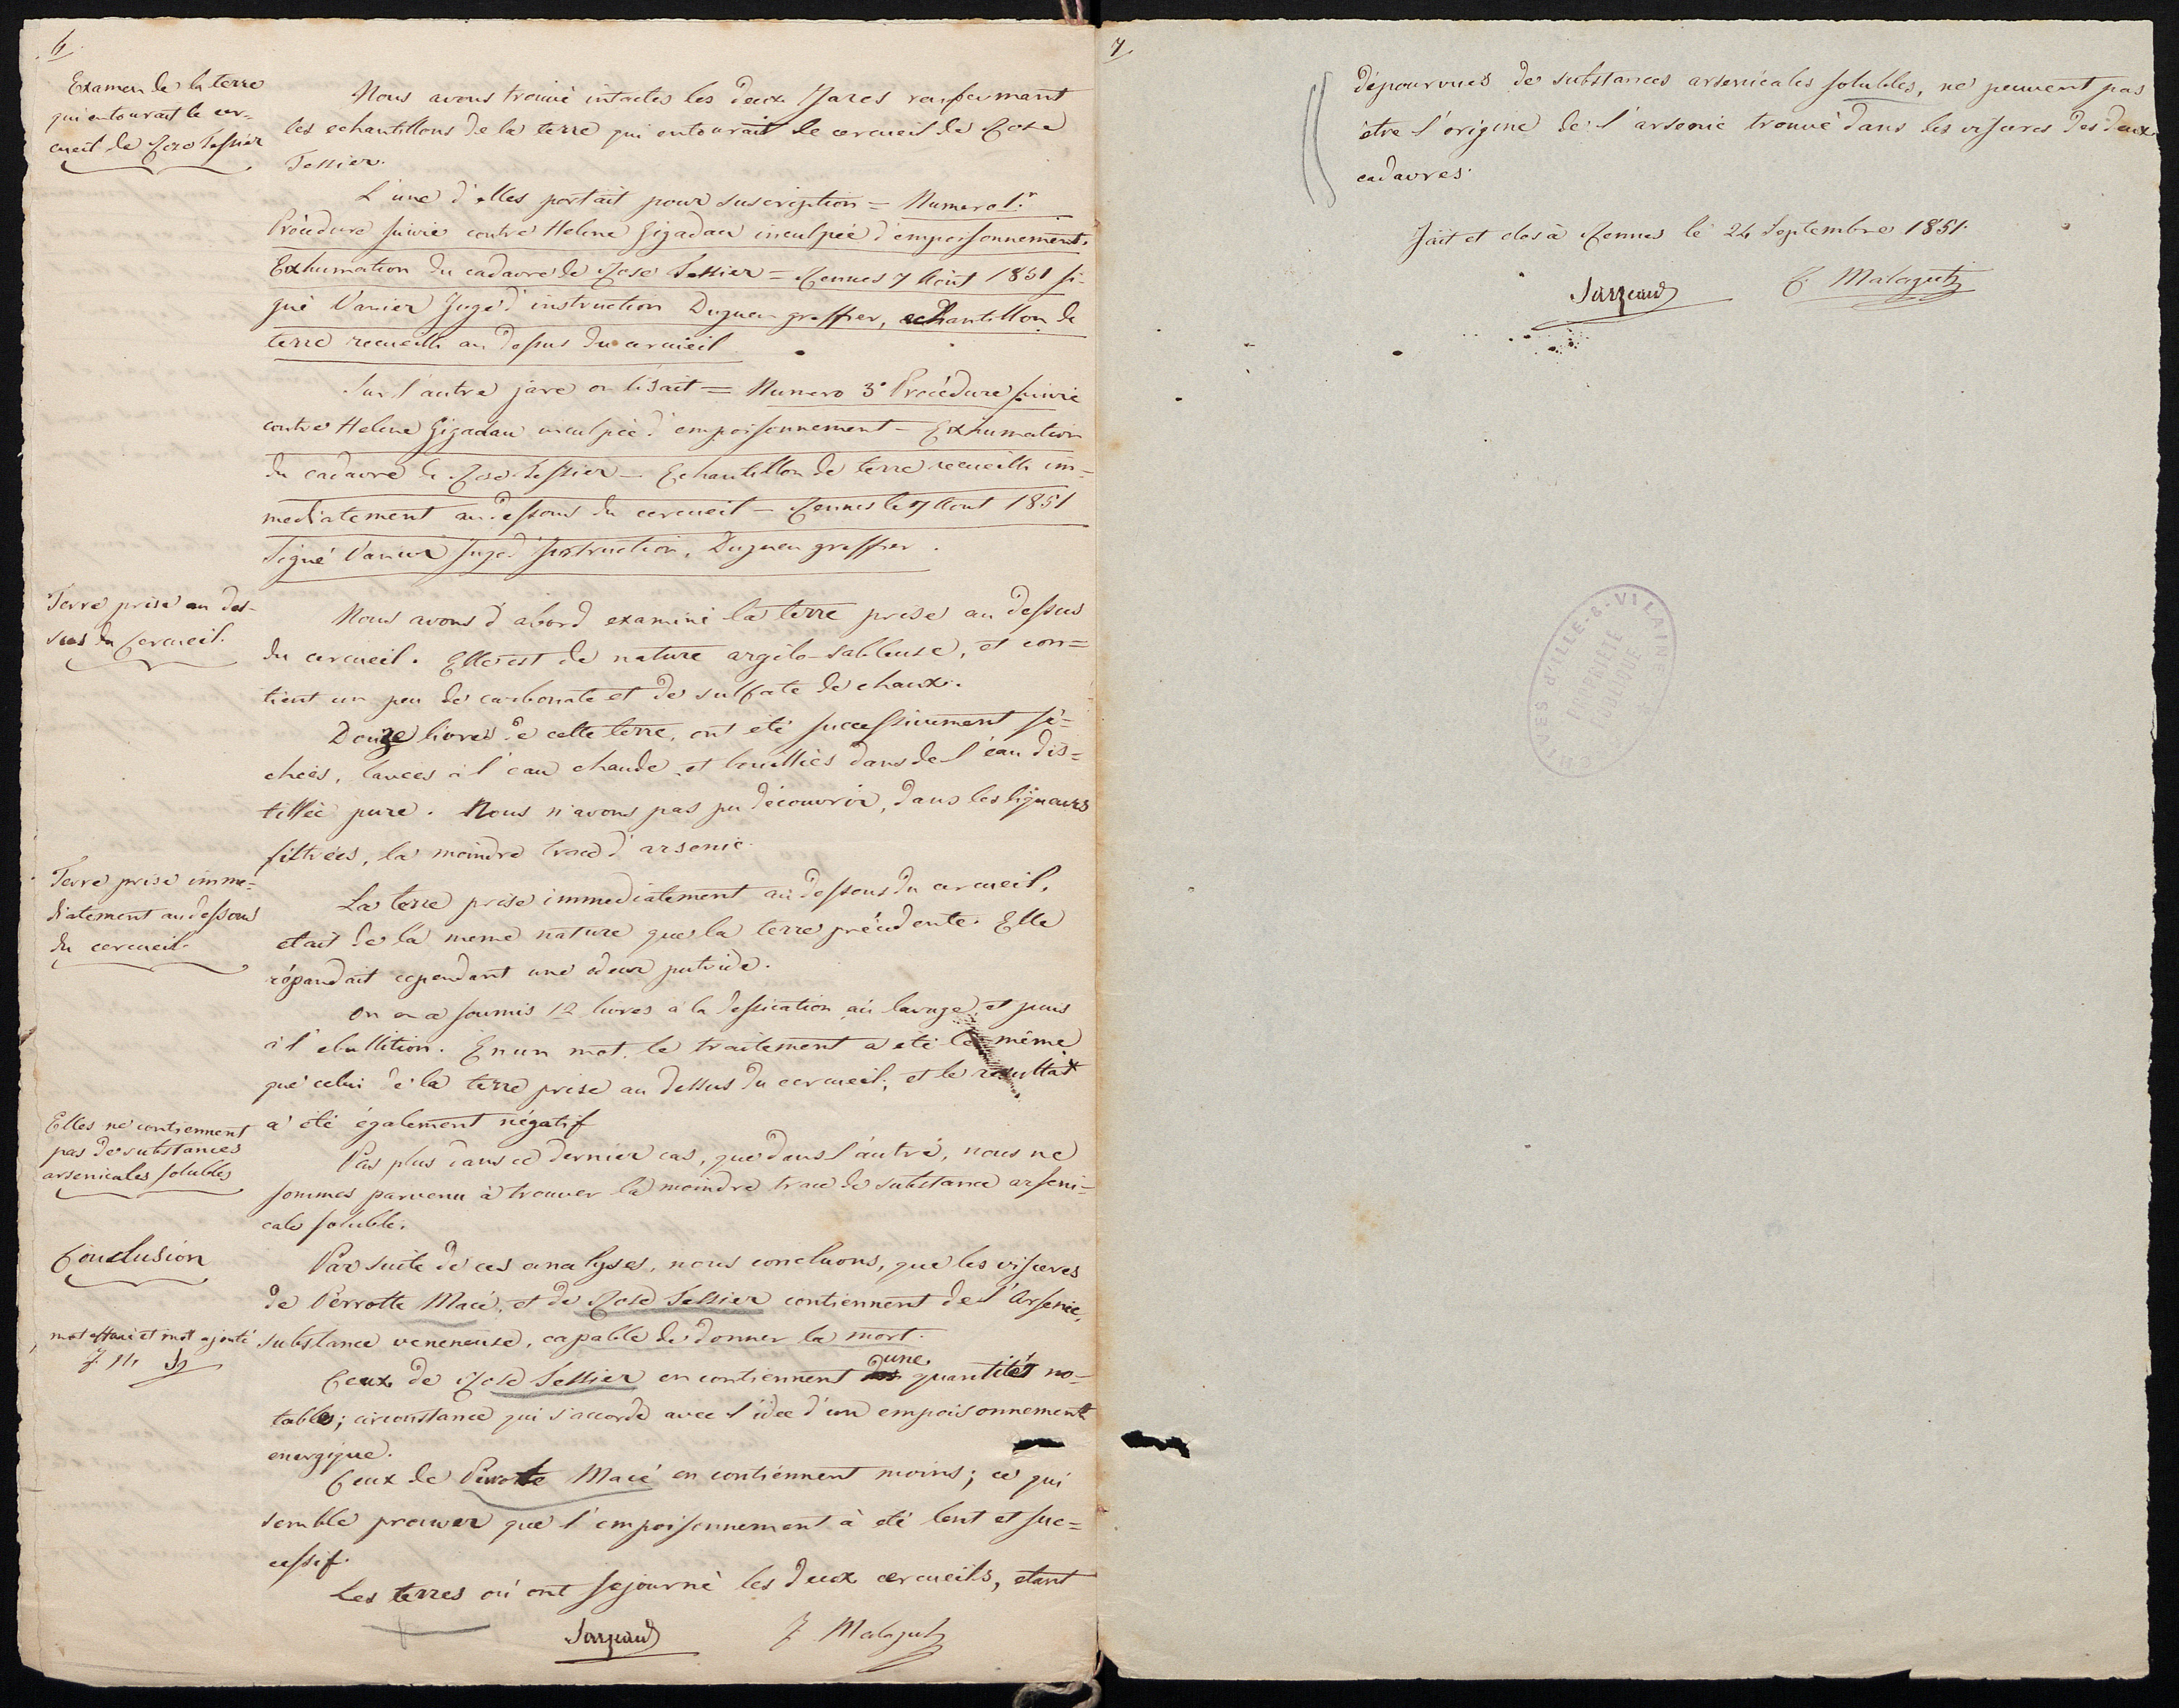 6
Examen de la terre
qui entourait le cer-
cueil de Rose Tessier
Nous avons trouvé intactes les deux Jares renfermant
les echantillons de la terre qui entourait le cercueil de Rose
Tessier.
L'une d'elles portait pour suscription = Numero 1.r
Procédure suivie contre Helene Gigadau inculpée d'empoisonnement.
Exhumation du cadavre de Rose Tessier = Rennes 7 Aout 1851 si-
gné Vanier Juge d'instruction Duguen greffier, echantillon de
terre recueilli au dessus du cercueil
Sur l'autre jare on lisait = Numero 3° Procédure suivie
contre Helene Gigadau inculpée d'empoisonnement - Exhumation
du cadavre de Rose Tessier - Echantillon de terre recueilli im-
mediatement au dessous du cercueil - Rennes le 7 Aout 1851
Signé Vanier Juge d'instruction, Duguen greffier.
Terre prise au des-
sus du Cercueil.
Nous avons d'abord examiné la terre prise au dessus
du cercueil. Elle est de nature argilo-sableuse, et con=
tient un peu de carbonate et de sulfate de chaux.
Douze livres de cette terre, ont été successivement sé=
chées, lavées à l'eau chaude et bouillies dans de l'eau dis=
tillée pure. Nous n'avons pas pu découvrir, dans les liqueurs
filtrées, la moindre trace d'arsenic.
Terre prise imme=
diatement au dessous
du cercueil.
La terre prise immediatement au dessous du cercueil,
etait de la meme nature que la terre précédente. Elle
répandait cependant une odeur putride.
On en a soumis 12 livres à la dessication au lavage, et puis
à l'ebullition. En un mot, le traitement a été le même
que celui de la terre prise au dessus du cercueil; et le resultat
a été également négatif
Elles ne contiennent
pas de substances
arsenicales solubles
Pas plus dans ce dernier cas, que dans l'autre, nous ne
sommes parvenu à trouver la moindre trace de substance arseni=
cale soluble.
Conclusion
Par suite de ces analyses, nous concluons, que les visceres
de Perrotte Macé, et de Rose Tessier contiennent de l'Arsenic,
substance veneneuse, capable de donner la mort.
mot effacé et mot ajouté
Ceux de Rose Tessier en contiennent une quantité no-
table; circonstance qui s'accorde avec l'idée d'un empoisonnement
energique.
Ceux de Perrotte Macé en contiennent moins; ce qui
semble prouver que l'empoisonnement à été lent et suc=
cessif.
Les terres où ont sejourné les deux cercueils, etant
Sarzeaud
F Malaguti
7
dépourvues de substances arsenicales solubles, ne peuvent pas
être l'origine de l'arsenic trouvé dans les viseres des deux
cadavres.
Fait et clos à Rennes le 24 Septembre 1851.
Sarzeaud
F Malaguti
CHIVES d'ILLE-&-VILAINE
PROPRIÉTÉ
PUBLIQUE